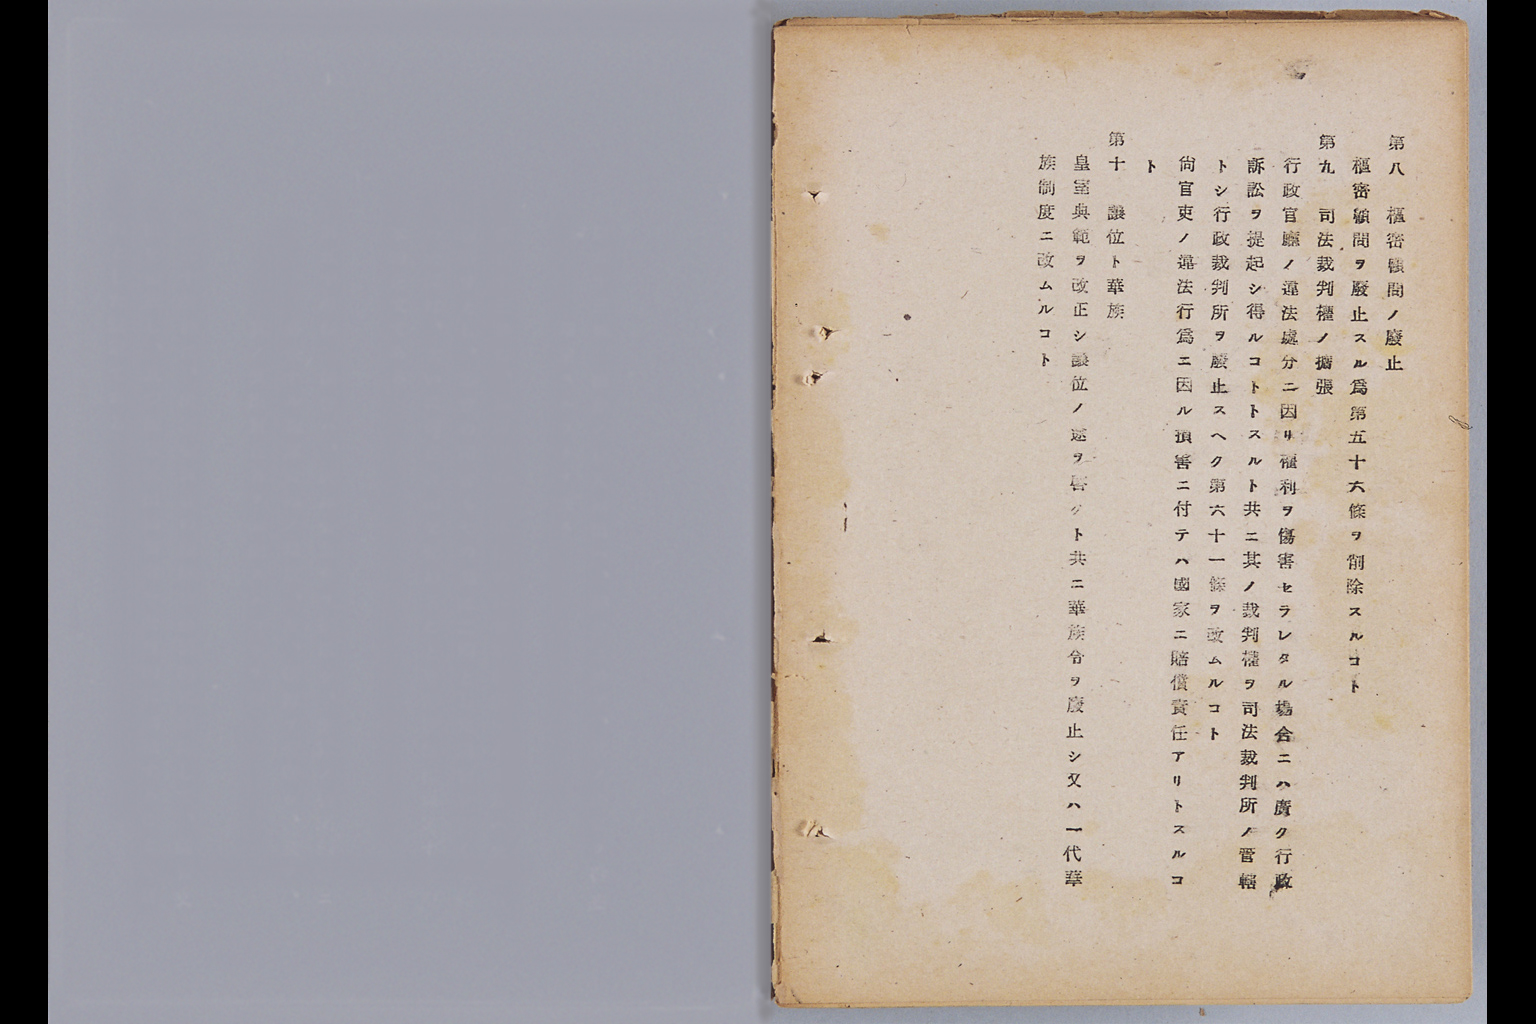 第八　樞密顧問ノ廢止
樞密顧問ヲ廢止スル爲第五十六條ヲ削除スルコト
第九　司法裁判權ノ擴張
行政官廳ノ違法處分ニ因リ權利ヲ傷害セラレタル場合ニハ廣ク行政
訴訟ヲ提起シ得ルコトトスルト共ニ其ノ裁判權ヲ司法裁判所ノ管轄
トシ行政裁判所ヲ廢止スヘク第六十一條ヲ改ムルコト
尙官吏ノ違法行爲ニ因ル損害ニ付テハ國家ニ賠償責任アリトスルコ
ト
第十　讓位ト華族
皇室典範ヲ改正シ讓位ノ途ヲ啓クト共ニ華族令ヲ廢止シ又ハ一代華
族制度ニ改ムルコト